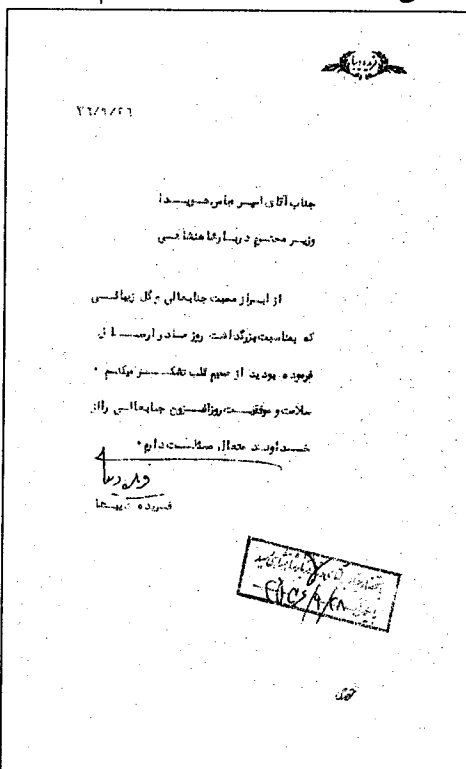 فریده دیبا
۳۶/۹/۲۶
جناب آقای امیر عباس هویدا
وزیر محترم دربار شاهنشاهی
از ابراز محبت جنابعالی و گل زیبائی
که بمناسبت بزرگداشت روز مادر ارسال
فرموده بودید از صمیم قلب تشکر میکنم .
سلامت و موفقیت روزافزون جنابعالی را از
خداوند متعال مسئلت دارم .
فریده دیبا